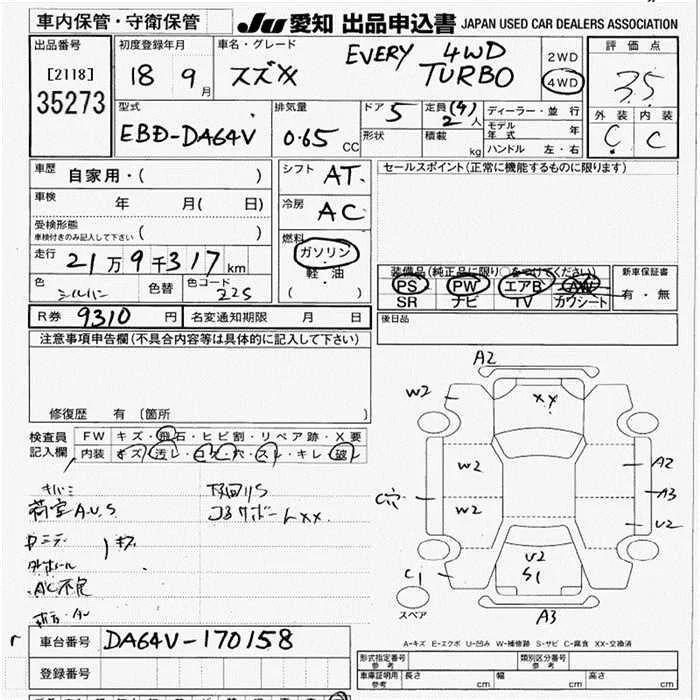 車内保管・守衛保管
JU 愛知 出品申込書 JAPAN USED CAR DEALERS ASSOCIATION
出品番号
[2118]
35273
初度登録年月
18 9月
車名・グレード
スズキ EVERY 4WD TURBO
2WD
4WD
評価点
3.5
外装 内装
C C
型式
EBD-DA64V
排気量
0.65 CC
ドア 5
形状
定員(4)
2人
積載 kg
ディーラー・並行
モデル年式 年
ハンドル 左・右
車歴 自家用・( )
車検 年 月( 日)
受検形態
車検付きのみ記入して下さい ( )
走行 21万9千317km
色 シルバー 色替 色コード Z2S
シフト AT
冷房 AC
燃料
ガソリン
軽・油
( )
セールスポイント(正常に機能するものに限ります)
装備品(純正品に限り○をつけてください)
PS PW エアB AW
SR ナビ TV カワシート
新車保証書
有・無
R券 9310 円 名変通知期限 月 日
後日品
注意事項申告欄(不具合内容等は具体的に記入して下さい)
修復歴 有(箇所
検査員記入欄
FW キズ・飛石・ヒビ割・リペア跡・X要
内装 キズ・汚レ・コゲ・穴・スレ・キレ・破レ
荷室A.U.S
下回りS
コアサポートXX
AC不良
A2
W2
XX
W2
A2
C穴
A3
W2
U2
U2
S1
C1
A3
スペア
A-キズ E-エクボ U-凹み W-補修跡 S-サビ C-腐食 XX-交換済
車台番号 DA64V-170158
登録番号
形式指定番号 参考
類別区分番号 参考
車庫証明用 参考 長さ cm 幅 cm 高さ cm